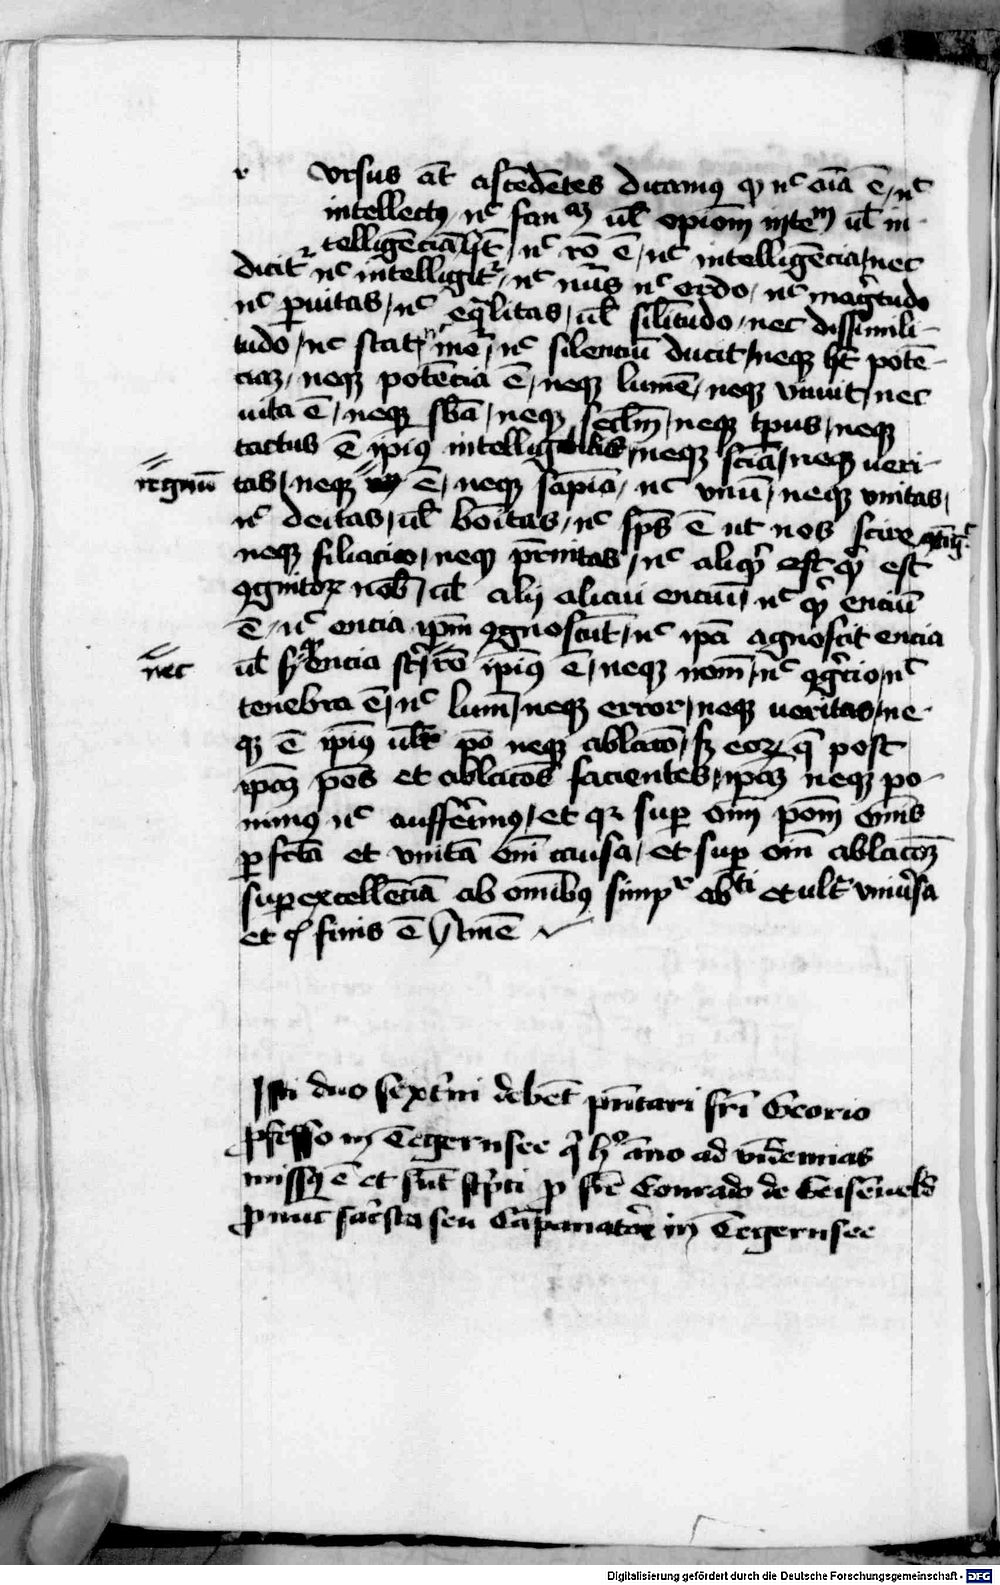 r vrsus at̄ ascēdētes dicamus qͥ nᶜ aīa ē, nᶜ
intellectꝰ, nᶜ fanᵃᵐ ul̄ opiom̄ intēᵐ ul̄ in-
telligēciā nᶜ rō ē, nᶜ intelligēcia, nec
dicit᷑ nᶜ intelligit᷑, nᶜ nūs nᶜ ordo, nᶜ maḡtudo
nᶜ ꝑuitas, nᶜ eq̄litas, ul̄ sil̄itudo, nec dissimili-
tudo, nᶜ stat, nᶜ silenciū ducit, neqꝫ hꝫ potē-
ciaꝫ, neqꝫ potēcia ē, neqꝫ lumē, neqꝫ viuit, nec
uita ē, neqꝫ sb̄a, neqꝫ secl̄m, neqꝫ tp̄us, neqꝫ
tactus ē ip̄iꝰ intelligibilis, neqꝫ sciā, neqꝫ ueri-
regnū
tas, neqꝫ ē, neqꝫ sapīa, nᶜ vnū, neqꝫ vnitas,
nᶜ deitas, ul̄ bōitas, nᶜ sp̄s ē ut nos scire
neqꝫ filiacio, neqꝫ pr̄nitas, nᶜ aliqͥ est qͥ est
ꝯgnitoꝝ nob̄, ul̄ alij alicui enciū, nᶜ qͥ enciū
ē, nᶜ encia ip̄m ꝯgnoscūt, nᶜ ip̄a ꝯgnoscit encia
nec
ul̄ encia st̄, rō ip̄iꝰ ē, neqꝫ nom̄, nᶜ ꝯḡcio, nᶜ
tenebra ē, nᶜ lum̄, neqꝫ error, neqꝫ ueritas, ne-
qꝫ ē ip̄iꝰ po neqꝫ ablac̄o, sꝫ eoꝝ q̄ post
ip̄aꝫ pōs et ablac̄oēs facientes, ip̄aꝫ neqꝫ po-
nimꝰ nᶜ auffer̄imꝰ, et qꝛ suꝑ om̄ pōm om̄is
ꝑfc̄ta et vnita om̄ causa, et suꝑ oīm ablac̄oꝫ
suꝑexcellēcia ab om̄ibꝰ simpʳ abᵗⁱ et ult᷑ vniu̾sa
et sͥ finis ē Amē
Isti duo sext̄ni debēt p̄ntari fr̄i Georio
ꝓfesso in Tegernsee q̄ hᵒ āno ad vn̄demias
missꝰ ē et sūt sc̄pti ꝑ fr̄ē Conrado de Geisēueld
ꝓ nūc sac̄sta seu Cāpanatorē in Tegernsee
Digitalisierung gefördert durch die Deutsche Forschungsgemeinschaft - DFG